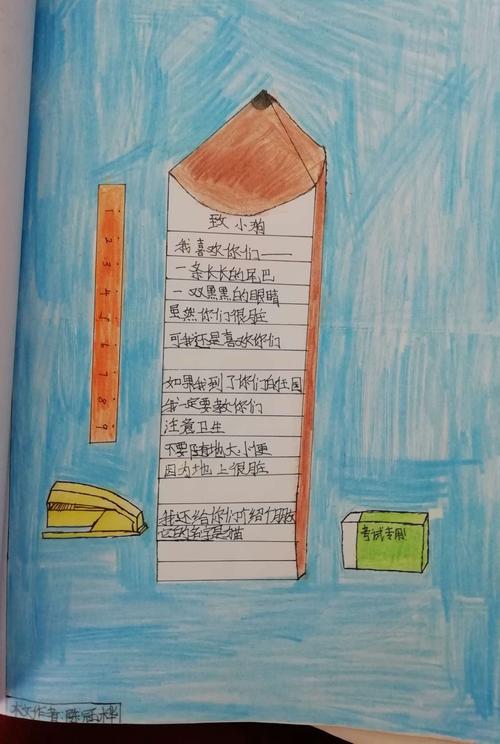 致小狗
我喜欢你们——
一条长长的尾巴
一双黑黑的眼睛
虽然你们很脏
可我还是喜欢你们
如果我到了你们的庄园
我一定要教你们
注意卫生
不要随地大小便
因为地上很脏
我还给你们介绍个朋友
它的名字是猫
1
2
3
4
5
6
7
8
9
考试专用
本文作者:陈